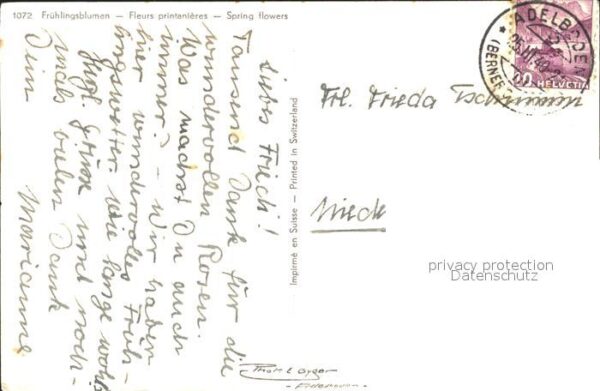 1072 Frühlingsblumen — Fleurs printanières — Spring flowers
Liebes Friedi!
Tausend Dank für die
wundervollen Rosen.
Was machst Du auch
immer? – Wir haben
hier wundervolles Früh-
lingswetter. Wie lange wohl
Hzgl. Grüsse und noch-
mals vielen Dank
Dein Marianne
Imprimé en Suisse — Printed in Switzerland
ADELBODEN
(BERNER
HELVETIA
Frl. Frieda
privacy protection
Datenschutz